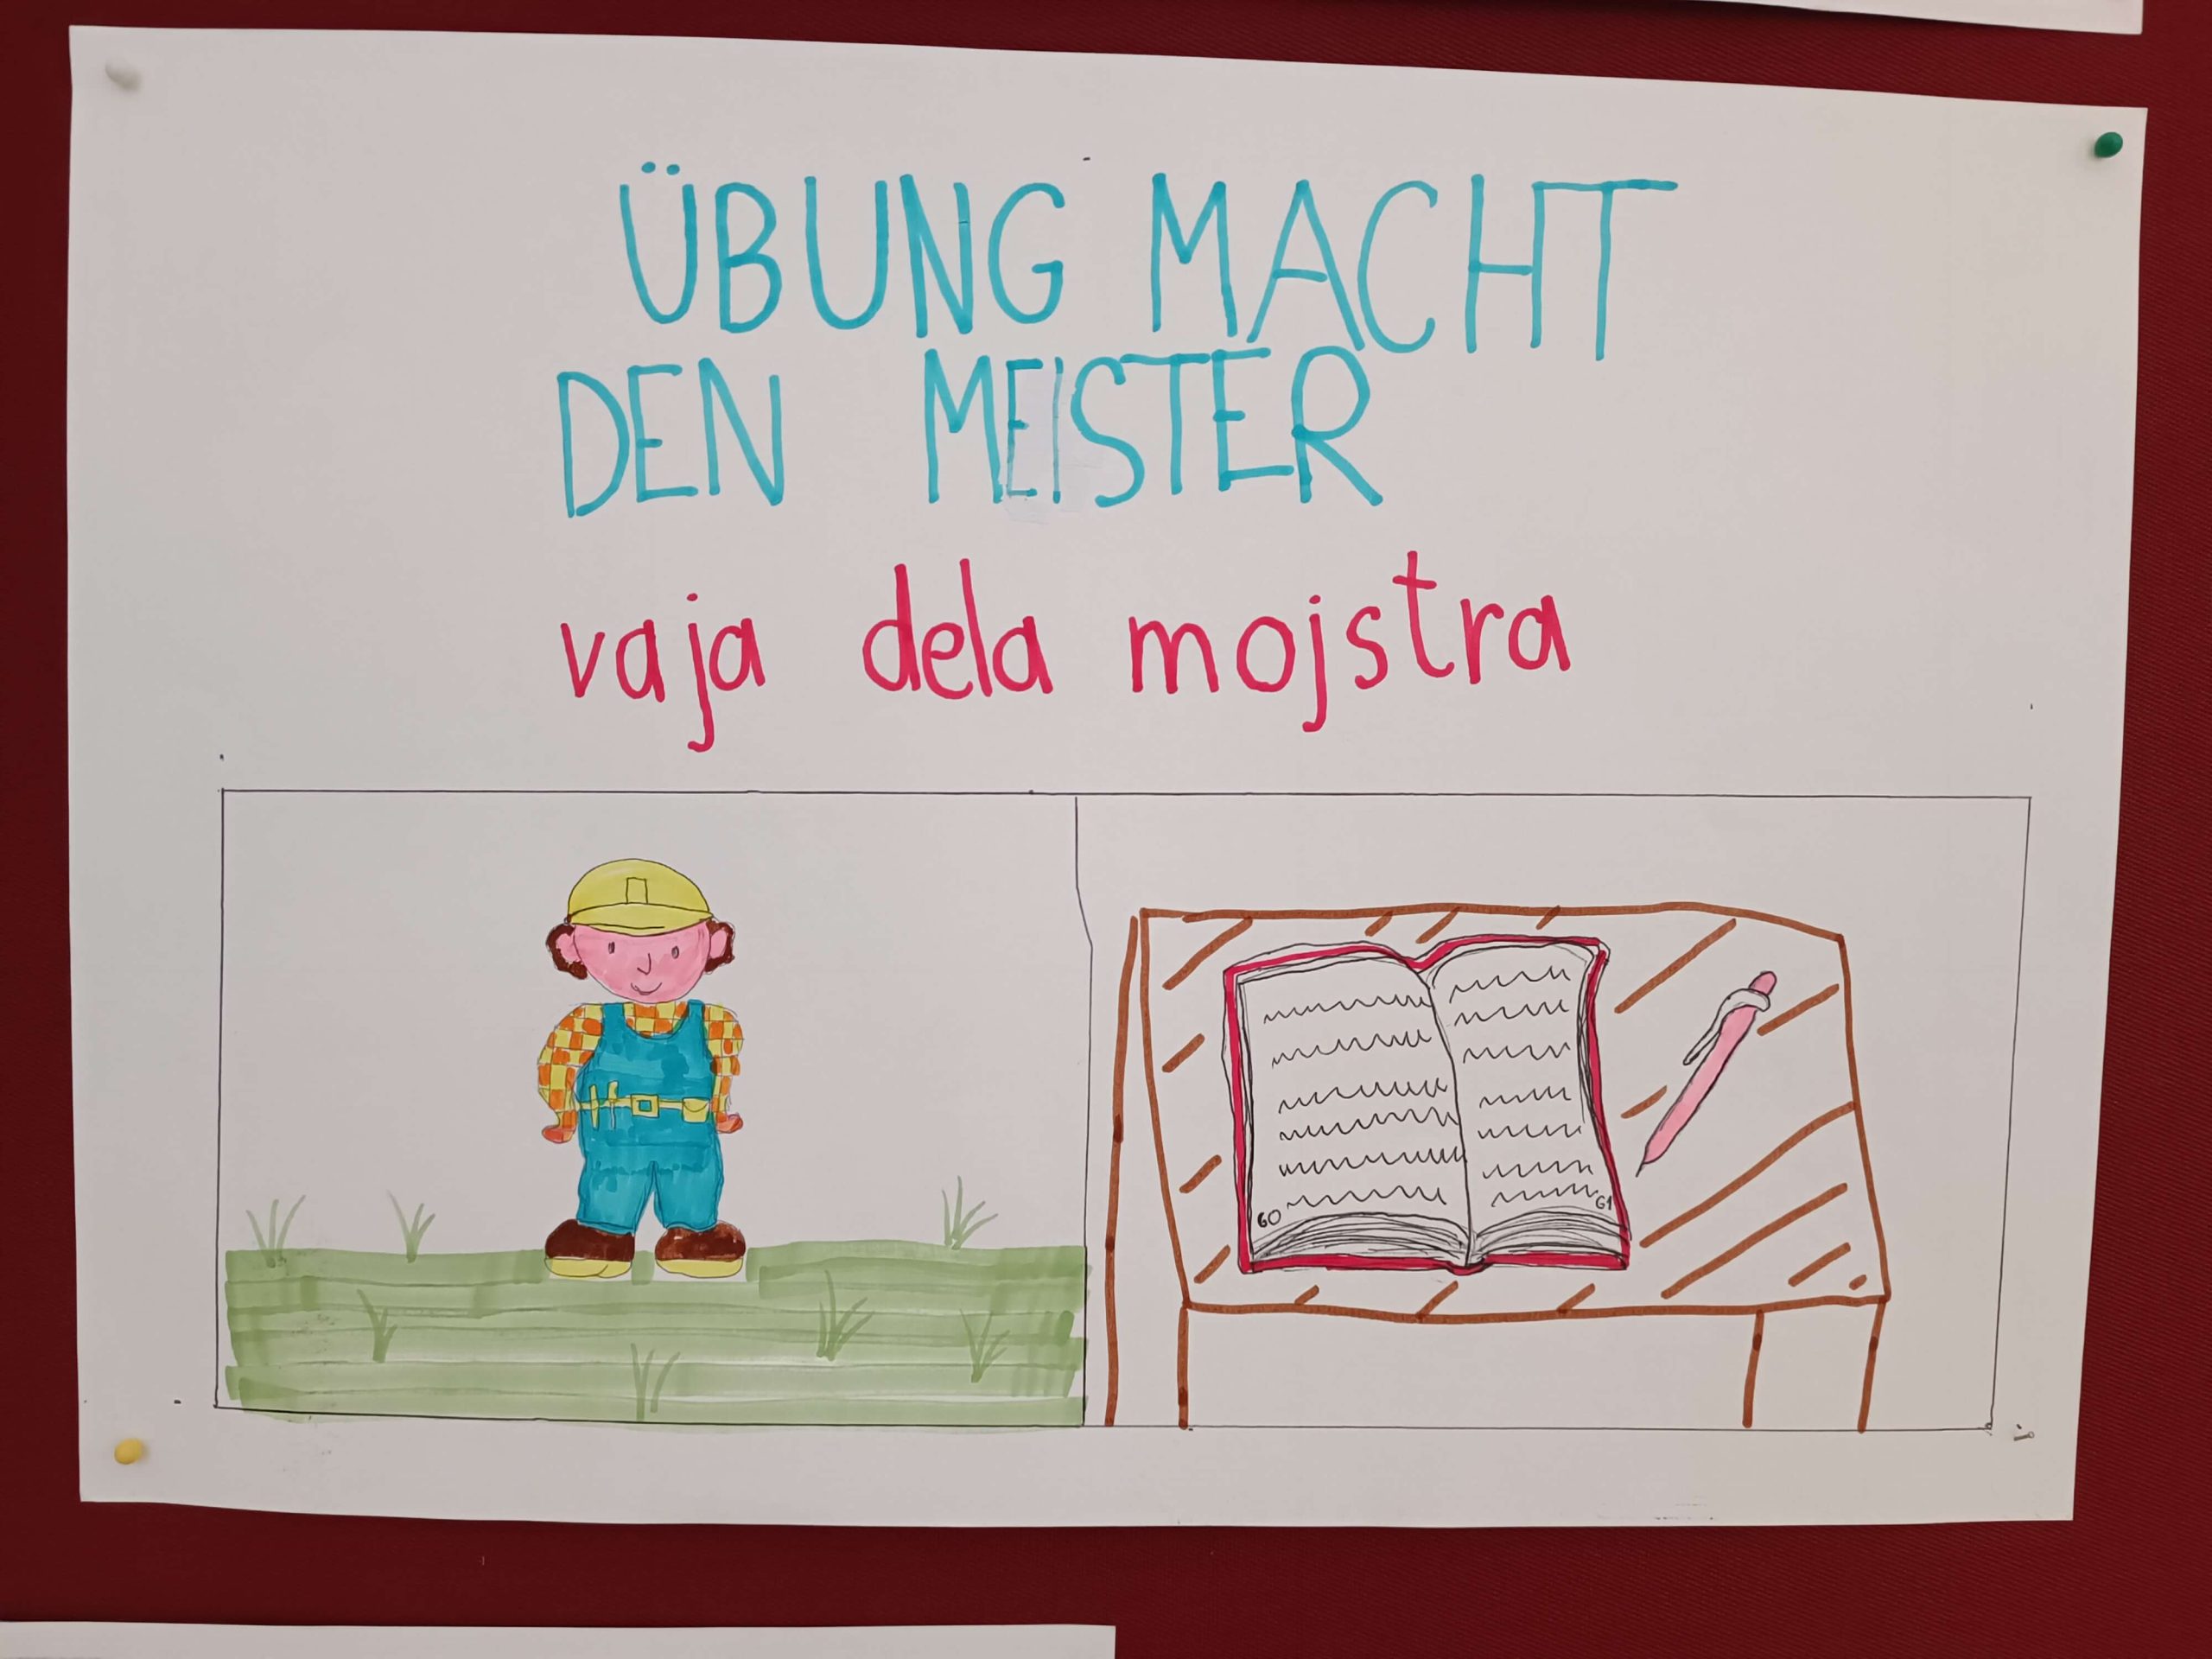 ÜBUNG MACHT
DEN MEISTER
vaja dela mojstra
60
61